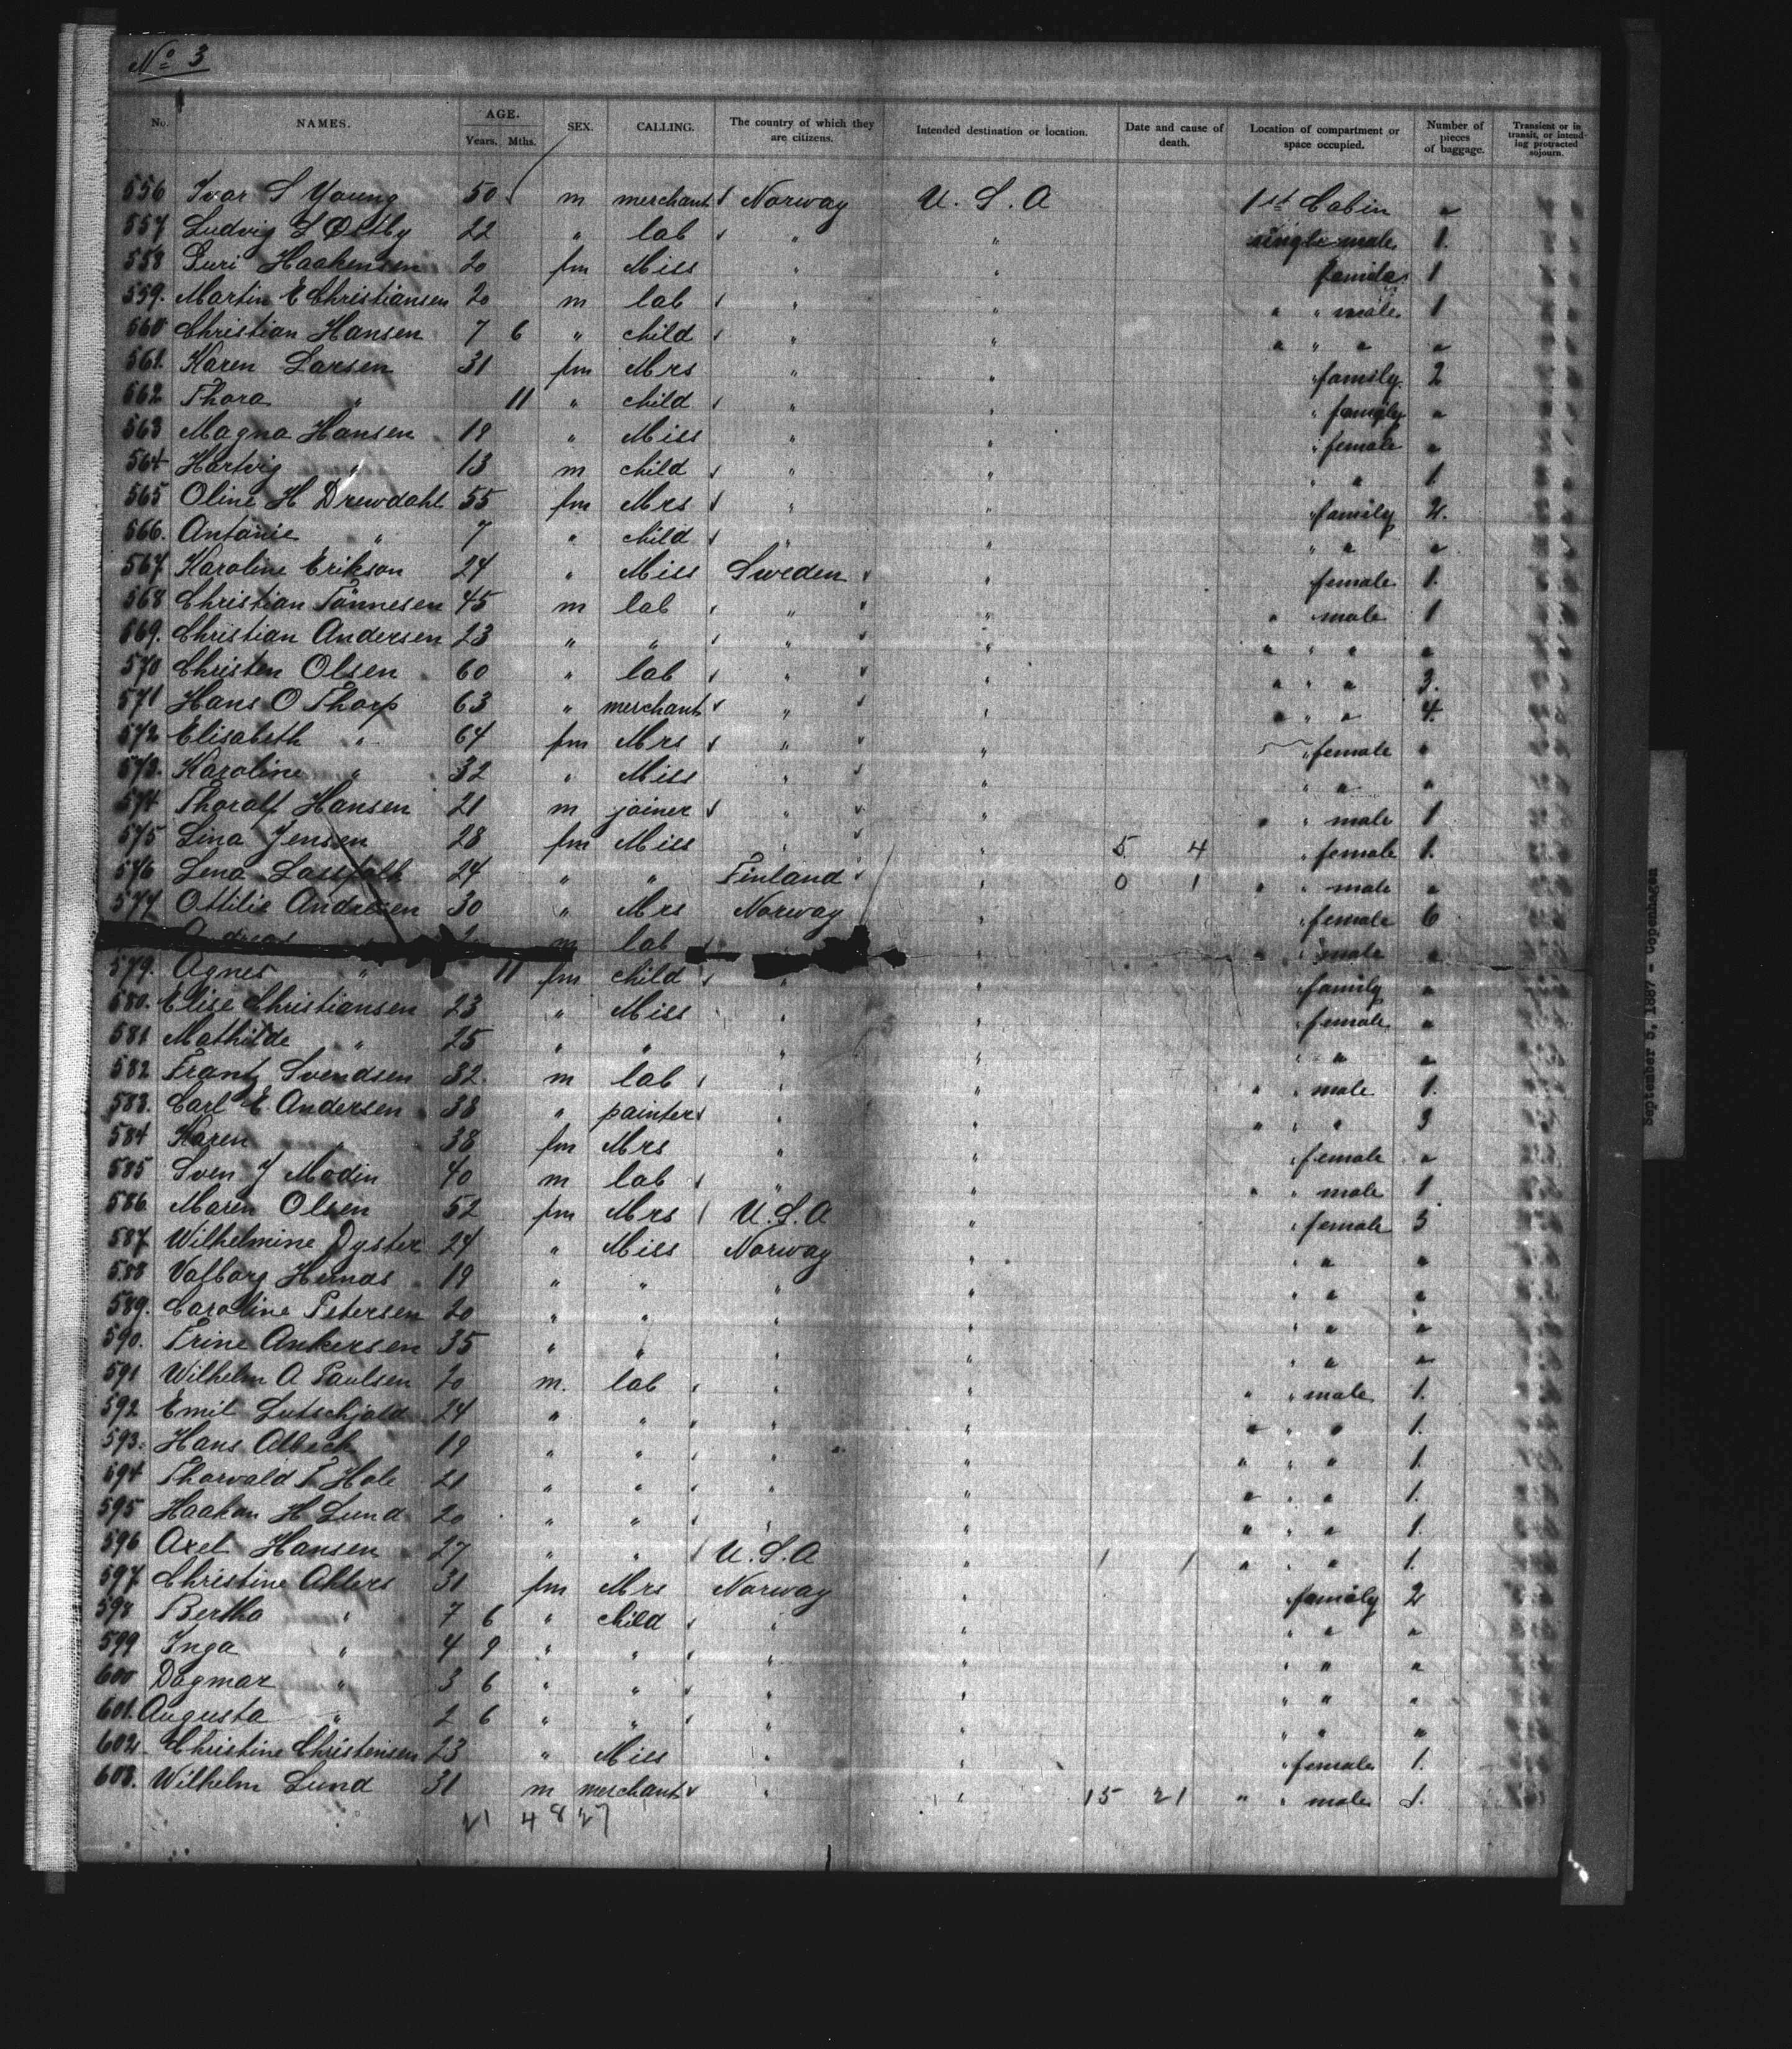 No 3
No. NAMES. AGE. Years. Mths. SEX. CALLING. The country of which they are citizens. Intended destination or location. Date and cause of death. Location of compartment or space occupied. Number of pieces of baggage. Transient or in transit, or intending protracted sojourn.
556 Ivar S Young 50 m merchant Norway U.S.A 1st Cabin "
557 Ludvig L Ostby 22 " lab " " single male 1.
558 Guri Haakensen 20 fm Miss " " female 1
559. Martin E Christiansen 20 m lab " " " " male 1
560 Christian Hansen 7 6 " child " " " " " "
561. Karen Larsen 31 fm Mrs " " " family 2
562 Thora " 11 " child " " " family "
563 Magna Hansen 19 " Miss " " " female "
564 Hartvig " 13 m child " " " " 1
565 Oline H Drewdahl 55 fm Mrs " " " family 2.
566. Antonie " 7 " child " " " " "
567 Karoline Erikson 24 " Miss Sweden " female 1.
568 Christian Tönnesen 45 m lab " " " male 1
569. Christian Andersen 23 " " " " " " " "
570 Christen Olsen 60 " lab " " " " " 3.
571 Hans O Thorp 63 " merchant " " " " " 4.
572 Elisabeth " 64 fm Mrs " " " female "
573. Karoline " 32 " Miss " " " " "
574 Thoralf Hansen 21 m joiner " " " " male 1
575 Lina Jensen 28 fm Miss " " 5 4 " female 1.
576 Lena 24 " " Finland " 0 1 " " male "
577 Ottilie Andresen 30 " Mrs Norway " " female 6
Andreas m lab " " " male "
579. Agnes " 11 fm child " " " family "
580. Elise Christiansen 23 " Miss " " " female "
581 Mathilde " 25 " " " " " " "
582 Frantz Svendsen 32 m lab " " " " male 1.
583. Carl E. Andersen 38 " painter " " " " " 3
584 Karen " 38 fm Mrs " " " female "
585 Sven J Modin 40 m lab " " " " male 1
586 Maren Olsen 52 fm Mrs U.S.A " " female 5
587 Wilhelmine Dyster 24 " Miss Norway " " " "
588 Valborg 19 " " " " " " "
589. Caroline Petersen 20 " " " " " " "
590. Trine Ankersen 35 " " " " " " "
591 Wilhelm A Paulsen 20 m. lab " " " " male 1.
592 Emil 24 " " " " " " " 1.
593. Hans Albech 19 " " " " " " " 1.
594 Thorvald T Hole 21 " " " " " " " 1.
595 Haakon H Lund 20 " " " " " " " 1.
596 Axel Hansen 27 " " U.S.A " 1 1 " " " 1.
597 Christine Ahlers 31 fm Mrs Norway " family 2
598 Bertha " 7 6 " child " " " " "
599 Inga " 4 9 " " " " " " "
600 Dagmar " 3 6 " " " " " " "
601. Augusta " 2 6 " " " " " " "
602 Christine Christensen 23 " Miss " " " female 1.
603. Wilhelm Lund 31 m merchant " " 15 21 " " male 1.
21 48 27
September 5, 1887 - Copenhagen